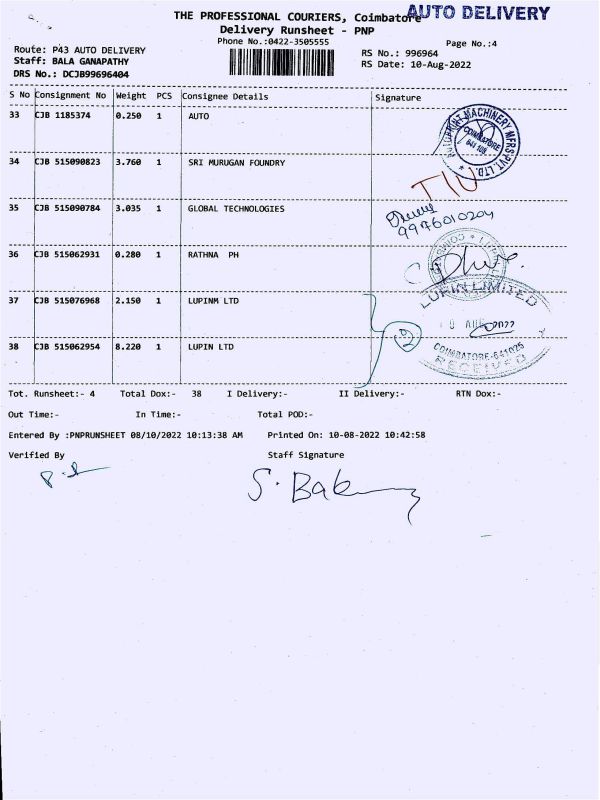 THE PROFESSIONAL COURIERS, Coimbatore
AUTO DELIVERY
Delivery Runsheet - PNP
Phone No.:0422-3505555
Page No.:4
Route: P43 AUTO DELIVERY
RS No.: 996964
Staff: BALA GANAPATHY
RS Date: 10-Aug-2022
DRS No.: DCJB99696404
S No Consignment No Weight PCS Consignee Details Signature
33 CJB 1185374 0.250 1 AUTO
34 CJB 515090823 3.760 1 SRI MURUGAN FOUNDRY
35 CJB 515090784 3.035 1 GLOBAL TECHNOLOGIES
9976010204
36 CJB 515062931 0.280 1 RATHNA PH
37 CJB 515076968 2.150 1 LUPINM LTD
LUPIN LIMITED
2022
2
38 CJB 515062954 8.220 1 LUPIN LTD
COIMBATORE-641025
RECEIVED
Tot. Runsheet:- 4 Total Dox:- 38 I Delivery:- II Delivery:- RTN Dox:-
Out Time:- In Time:- Total POD:-
Entered By :PNPRUNSHEET 08/10/2022 10:13:38 AM Printed On: 10-08-2022 10:42:58
Verified By Staff Signature